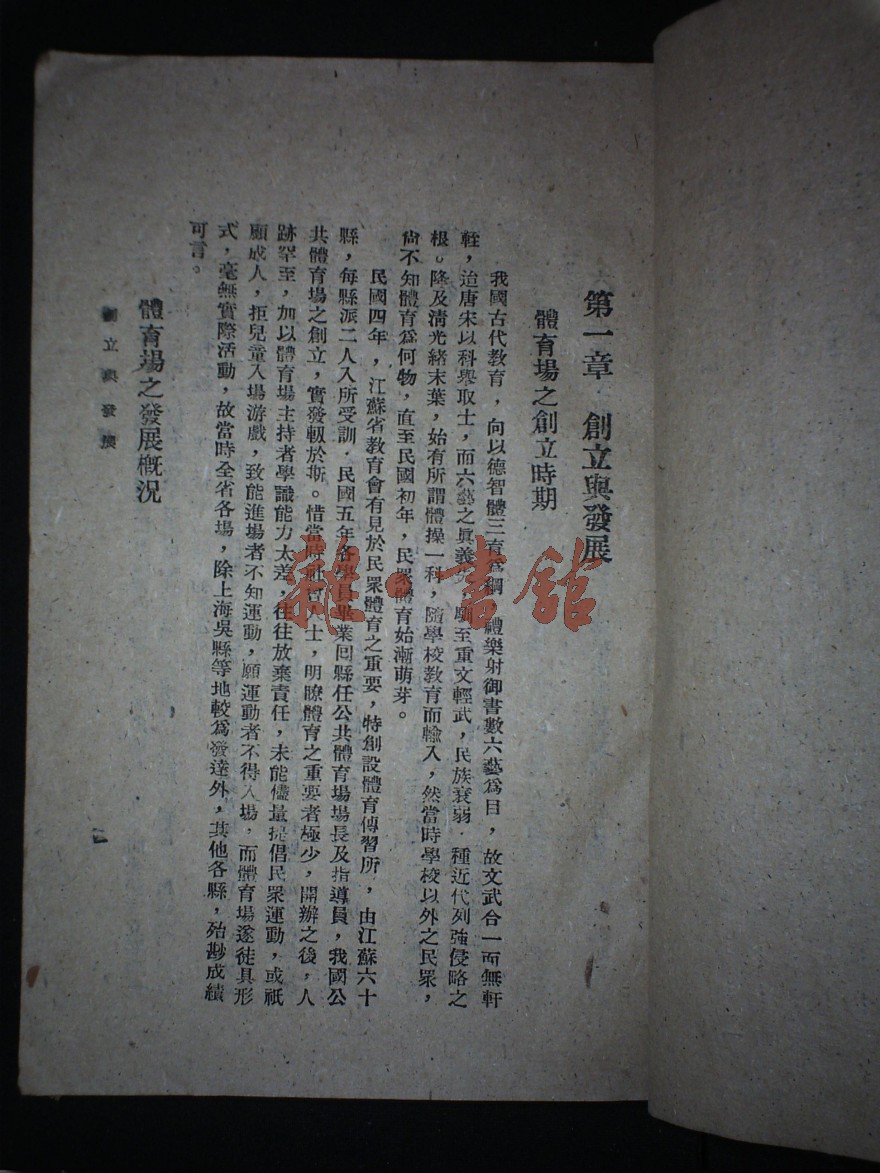 第一章　創立與發展
體育場之創立時期
我國古代教育，向以德智體三育爲綱，禮樂射御書數六藝爲目，故文武合一而無軒
輊，迨唐宋以科舉取士，而六藝之眞義失，馴至重文輕武，民族衰弱．種近代列強侵略之
根。降及淸光緒末葉，始有所謂體操一科，隨學校教育而輸入，然當時學校以外之民眾，
尙不知體育爲何物，直至民國初年，民眾體育始漸萌芽。
民國四年，江蘇省教育會有見於民眾體育之重要，特創設體育傳習所，由江蘇六十
縣，每縣派二人入所受訓．民國五年各學員畢業回縣任公共體育場場長及指導員，我國公
共體育場之創立，實發軔於斯。惜當時社會人士，明瞭體育之重要者極少，開辦之後，人
跡罕至，加以體育場主持者學識能力太差，往往放棄責任，未能儘量提倡民眾運動，或祇
願成人，拒兒童入場游戲，致能進場者不知運動，願運動者不得入場，而體育場遂徒具形
式，毫無實際活動，故當時全省各場，除上海吳縣等地較爲發達外，其他各縣，殆尠成績
可言。
體育場之發展概況
創立與發展
一
雜·書館